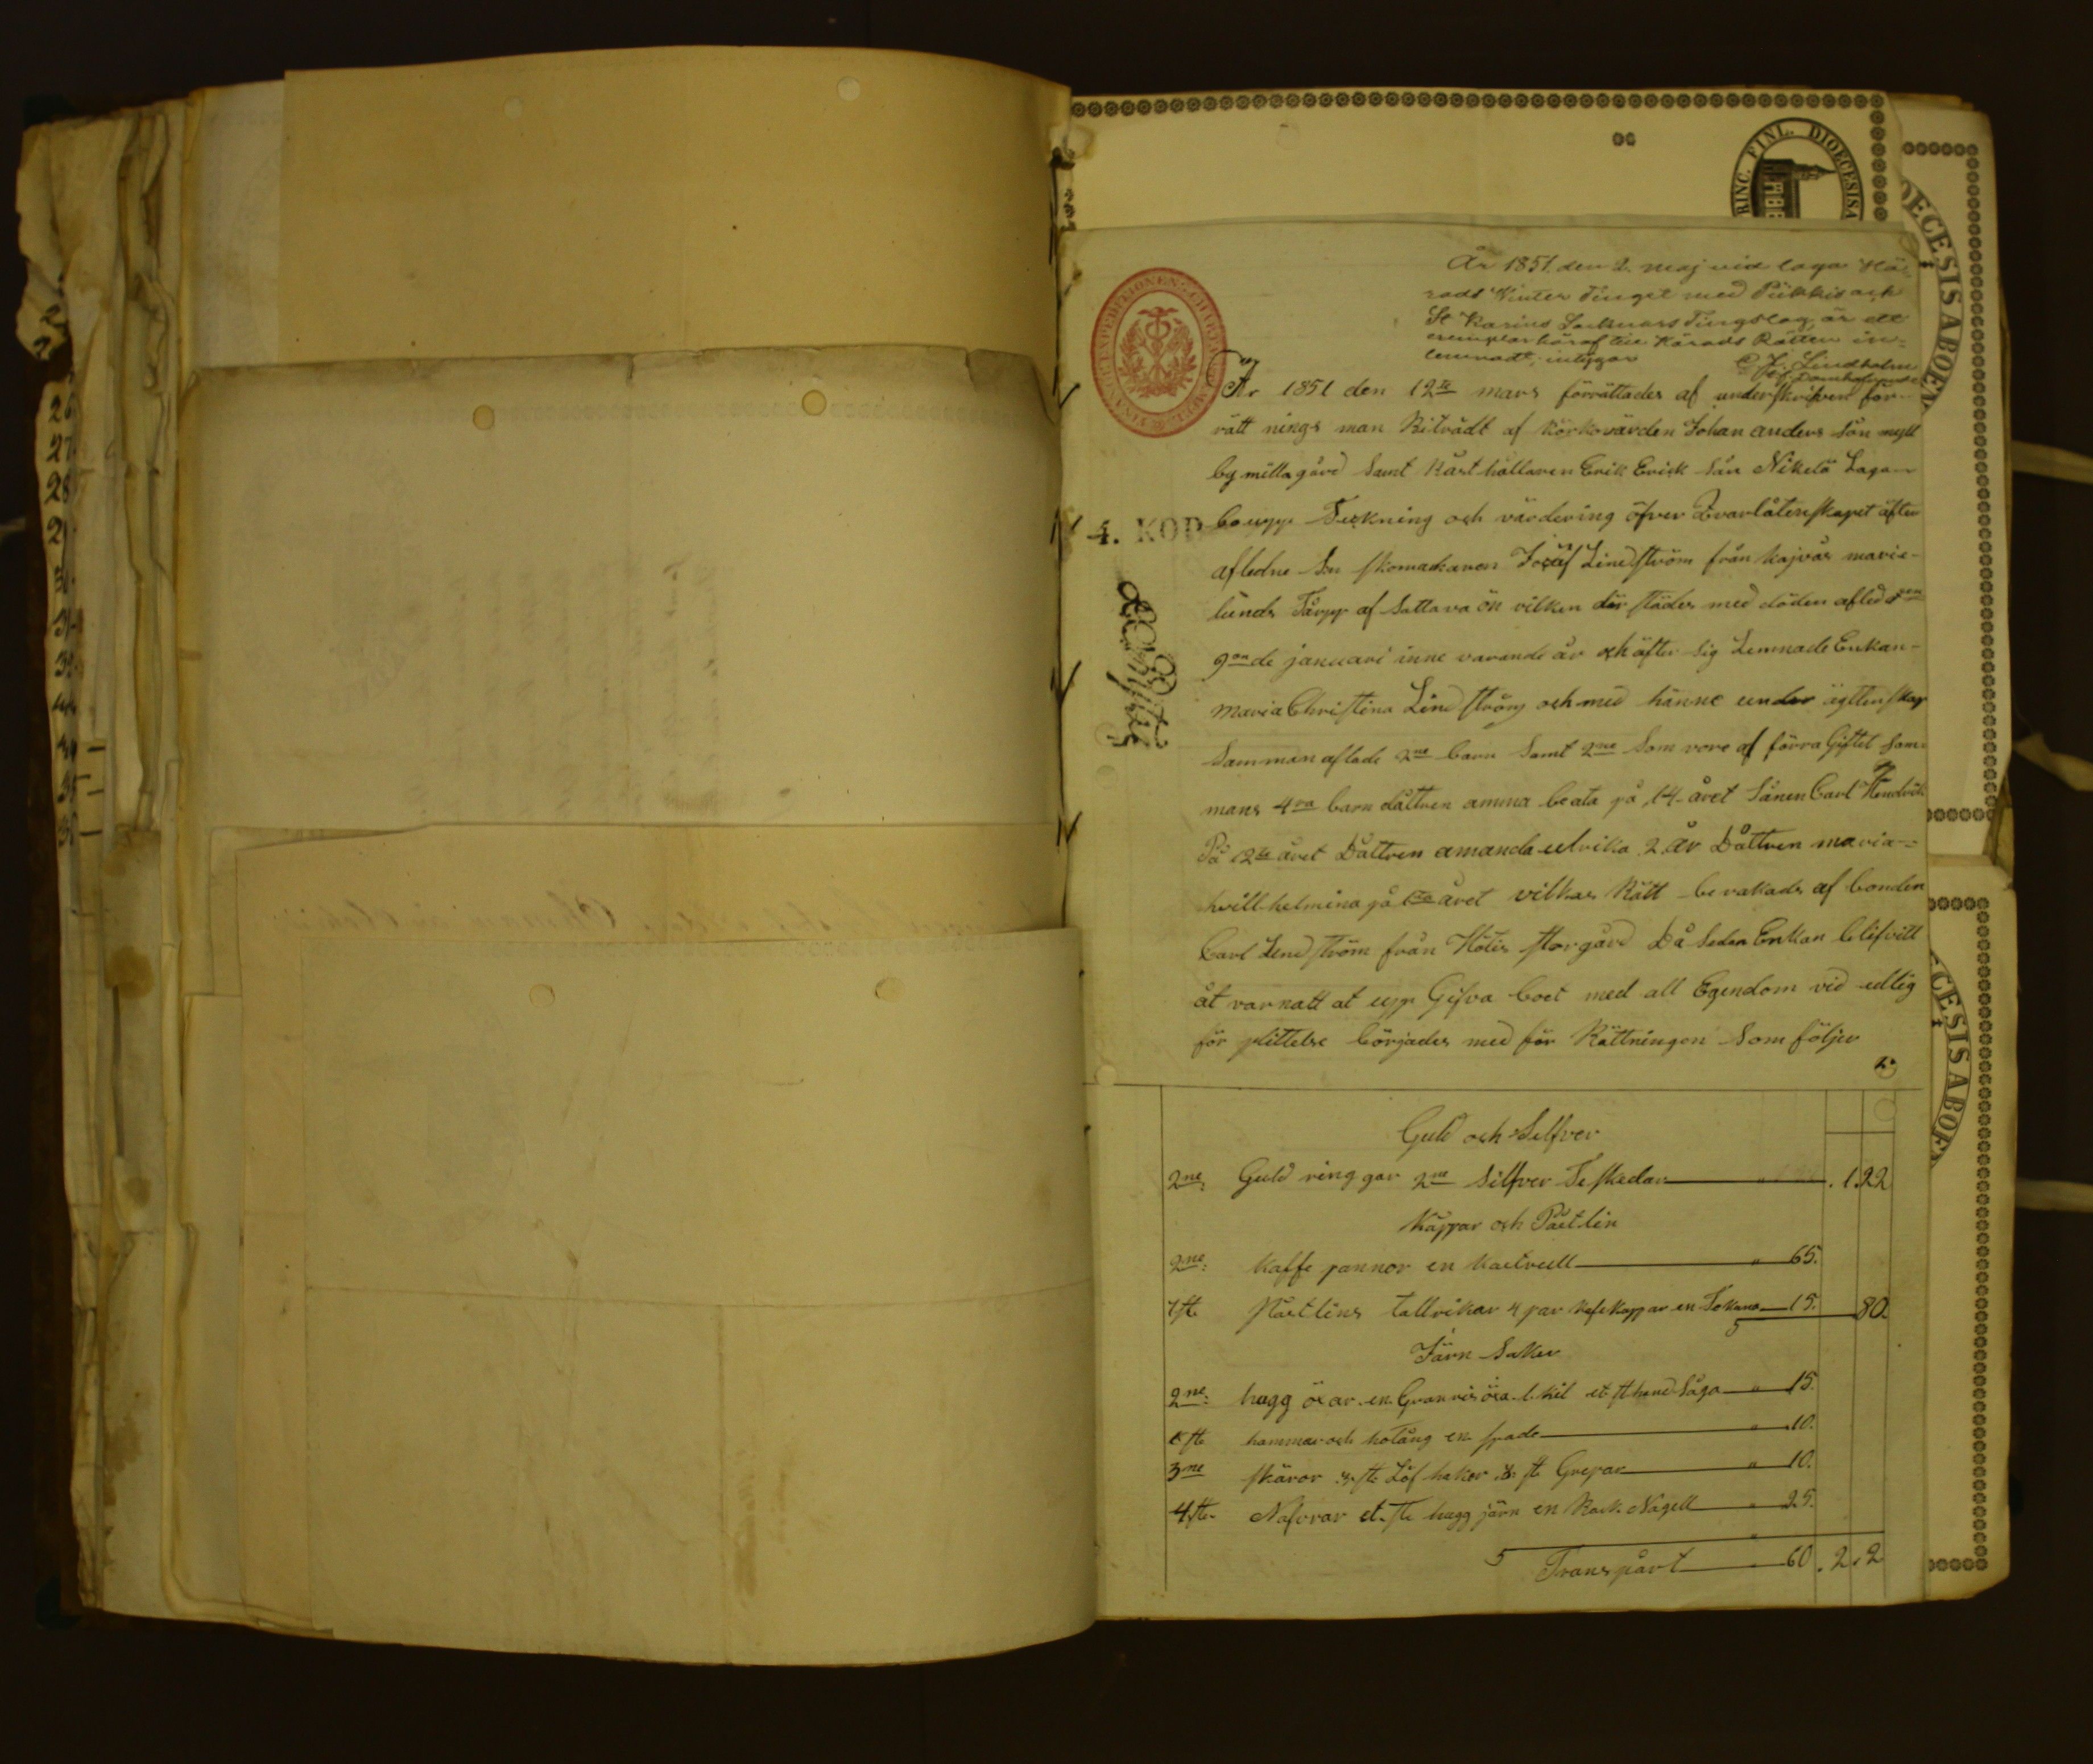 År 1851. den 2. Maj vid laga Hä-
rads Winter Tinget med Piikkis och
St Karins Socknars Tingslag, är ett
exemplar häraf till Härads Rätten in-
lemnadt; intygar C. J. Lindholm
År 1851 den 12te mars förrättades af underskrifven för-
rätt nings man Biträdt af körkovärden Johan anders sån myll
by mällagård samt Råsthållaren Erik Erick sån Nikelä Lagan
bo upp Teckning och värdering öfver Qvarlåtenskapet äfter
afledne skomackaren Josäf Lindström från Kajvås marie-
lunds Tårpp af Sattava ön vilken där städes med döden afled den
9onde januari inne varande år och äfter sig Lemnade Enkan-
maria Christina Lindström och med hänne under äyttenskap
samman aflade 2ne barn samt 2ne som vore af förra Giftet sam-
mans 4ra barn dåttren amma beata på 14- året Sånen Carl Hendrik
På 12te året Dåttren amanda ulrika 2. år Dåttren maria-
hvillhelmina på 1sta året vilkas Rätt bevakads af bonden
Carl Lindström från Håtis storgård Då sedan Enkan blifvitt
åt varnatt at upp Gifva boet med all Egendom vid edlig
för plittelse börjades med för Rättningen som följer
Guld och Silfver
2ne: Guld ring gar 2ne silfver Teskedar . 1.22
Kåppar och Påstlin
2ne: Kaffe pannor en Kastrull " 65.
7st. Påstlins tallrikar 4 par kafekoppar en Tekana 15. 80.
Järn Saker
2ne: hugg öxar en Granris öxa 1. kil et st hand såga " 15.
st hammar och hotång en spade " 10.
3ne skäror st Löf haker st Grepar " 10.
4st. Nafvrar et. st hugg järn en Nagell " 25.
Transpårt 60. 2.2
4. KOP
CHARTÆ
FINANCE EXPEDITIONEN
RINC. FINL. DIOECESISA
OECESISABOEN
CESISABOE
26
27
28
31
35